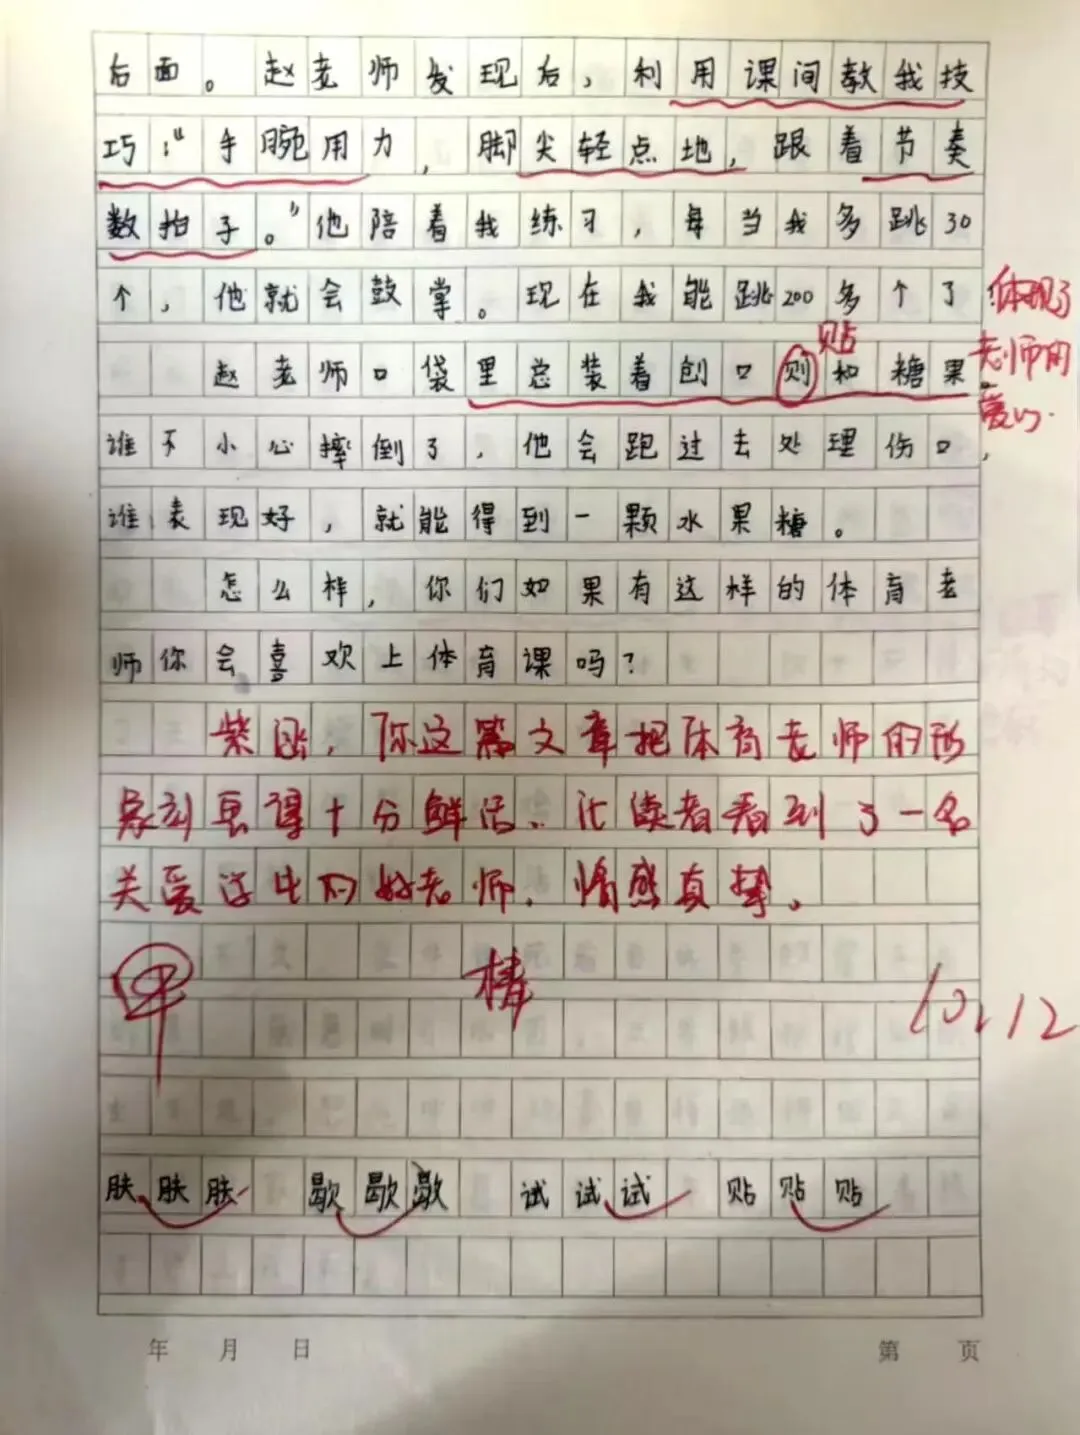 后面。赵老师发现后，利用课间教我技
巧："手腕用力，脚尖轻点地，跟着节奏
数拍子。"他陪着我练习，每当我多跳30
个，他就会鼓掌。现在我能跳200多个了
体现了
老师的
爱心.
贴
赵老师口袋里总装着创口则和糖果。
谁不小心摔倒了，他会跑过去处理伤口，
谁表现好，就能得到一颗水果糖。
怎么样，你们如果有这样的体育老
师你会喜欢上体育课吗？
紫涵，你这篇文章把体育老师的形
象刻画得十分鲜活，让读者看到了一名
关爱学生的好老师，情感真挚。
甲
棒
10.12
肤肤肤 歇歇歇 试试试 贴贴贴
年 月 日
第 页